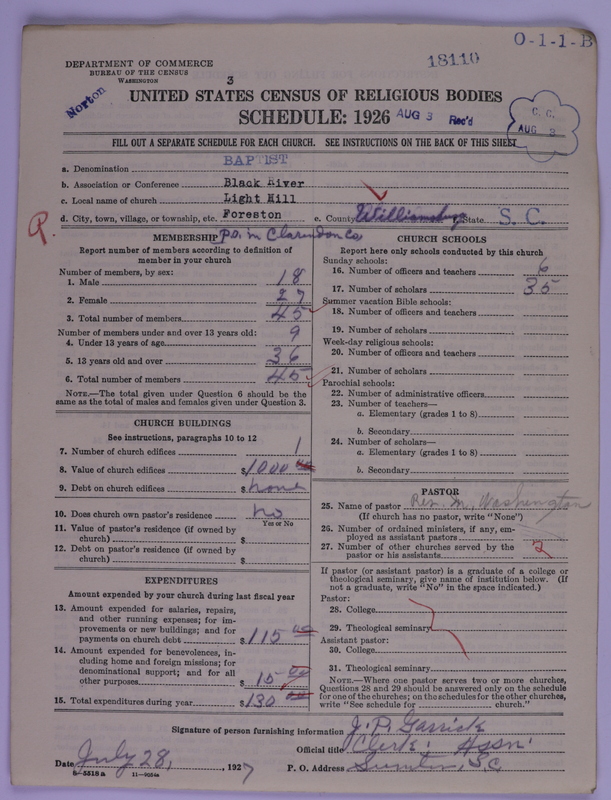 O-1-1-B
18110
DEPARTMENT OF COMMERCE
BUREAU OF THE CENSUS
WASHINGTON
3
Norton
UNITED STATES CENSUS OF RELIGIOUS BODIES
SCHEDULE: 1926 AUG 3 Rec'd
C. C.
AUG 3
FILL OUT A SEPARATE SCHEDULE FOR EACH CHURCH. SEE INSTRUCTIONS ON THE BACK OF THIS SHEET
a. Denomination BAPTIST
b. Association or Conference Black River
c. Local name of church Light Hill
d. City, town, village, or township, etc. Foreston e. County Williamsburg f. State S. C.
P.O. in Clarendon Co
MEMBERSHIP
Report number of members according to definition of
member in your church
Number of members, by sex:
1. Male 18
2. Female 27
3. Total number of members 45
Number of members under and over 13 years old:
4. Under 13 years of age 9
5. 13 years old and over 36
6. Total number of members 45
NOTE.—The total given under Question 6 should be
the same as the total of males and females given under Question 3.
CHURCH BUILDINGS
See instructions, paragraphs 10 to 12
7. Number of church edifices 1
8. Value of church edifices $1000 00
9. Debt on church edifices $none
10. Does church own pastor's residence no
Yes or No
11. Value of pastor's residence (if owned by
church) $
12. Debt on pastor's residence (if owned by
church) $
EXPENDITURES
Amount expended by your church during last fiscal year
13. Amount expended for salaries, repairs,
and other running expenses; for im-
provements or new buildings; and for
payments on church debt $115 00
14. Amount expended for benevolences, in-
cluding home and foreign missions; for
denominational support; and for all
other purposes $15 00
15. Total expenditures during year $130 00
CHURCH SCHOOLS
Report here only schools conducted by this church
Sunday schools:
16. Number of officers and teachers 6
17. Number of scholars 35
Summer vacation Bible schools:
18. Number of officers and teachers
19. Number of scholars
Week-day religious schools:
20. Number of officers and teachers
21. Number of scholars
Parochial schools:
22. Number of administrative officers
23. Number of teachers—
a. Elementary (grades 1 to 8)
b. Secondary
24. Number of scholars—
a. Elementary (grades 1 to 8)
b. Secondary
PASTOR
25. Name of pastor Rev. M. Washington
(If church has no pastor, write "None")
26. Number of ordained ministers, if any, em-
ployed as assistant pastors
27. Number of other churches served by the
pastor or his assistants 2
If pastor (or assistant pastor) is a graduate of a college or
theological seminary, give name of institution below. (If
not a graduate, write "No" in the space indicated.)
Pastor:
28. College
29. Theological seminary
Assistant pastor:
30. College
31. Theological seminary
NOTE.—Where one pastor serves two or more churches,
Questions 28 and 29 should be answered only on the schedule
for one of the churches; on the schedules for the other churches,
write "See schedule for church."
Signature of person furnishing information J. P. Garrick
Official title Clerk. Assn.
Date July 28, 1927 P. O. Address Sumter, S.C
8-5518a 11-9054a